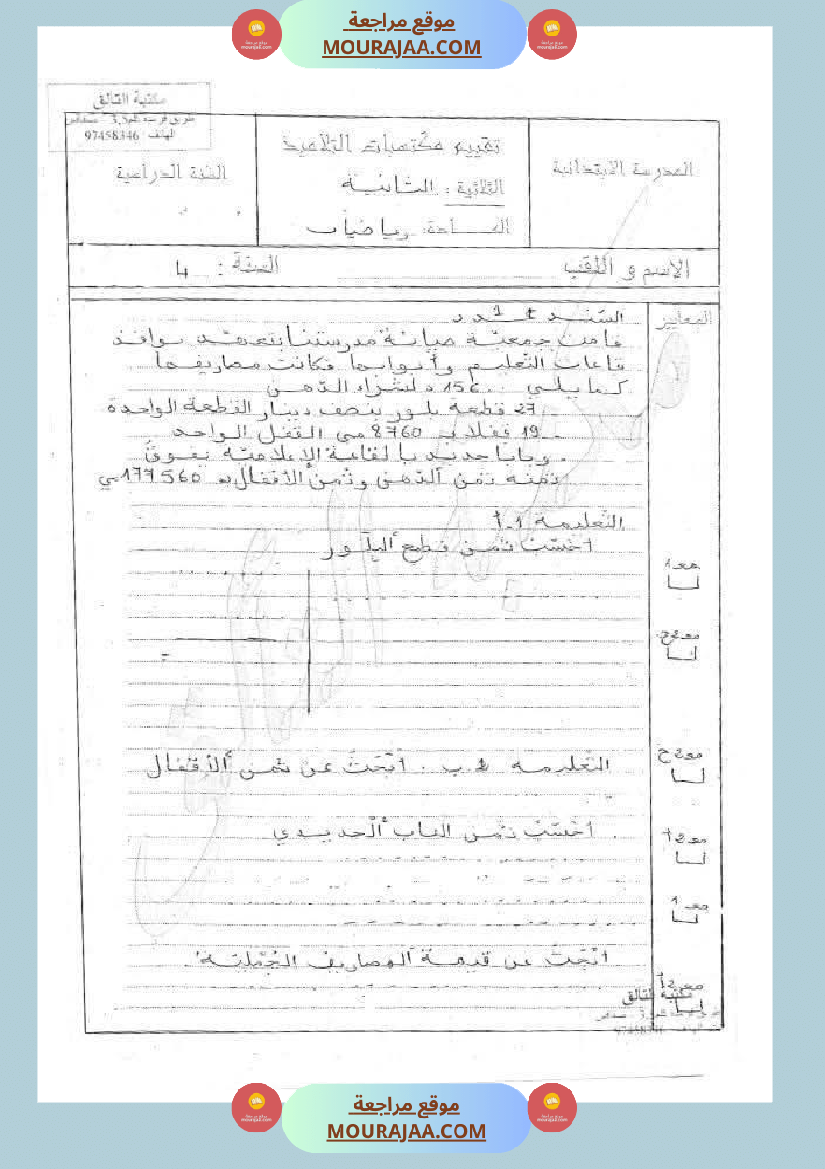 موقع مراجعة
MOURAJAA.COM
مكتبة التالق
الهاتف 97458346
المدرسة الابتدائية
تقييم مكتسبات التلاميذ
الثلاثية : الثانية
المــادة: رياضيات
السنة الدراعية
الاسم و اللقب
السنة : 4
المعايير
السند عـ1ـدد
قامت جمعيّة صيانة مدرستنا بتعهّد نوافذ
قاعات التعليم وأبوابها فكانت مصاريفها
كما يلي 156 د لشراء الدّهن
27 قطعة بلور بنصف دينار القطعة الواحدة
19 قفلا بـ 8760 مي القفل الواحد
وبابا حديديا لقاعة الإعلاميّة يفوق
ثمنه ثمن الدّهن وثمن الأقفال بـ 177560 مي
التعليمة 1-أ
احسب ثمن قطع البلور
مع1
مع2ج
التعليمة 1.ب : أبحث عن ثمن الأقفال
أحسب ثمن الباب الحديدي
مع1
أبحث عن قيمة المصاريف الجُمليّة
مع2أ
مكتبة التالق
موقع مراجعة
MOURAJAA.COM